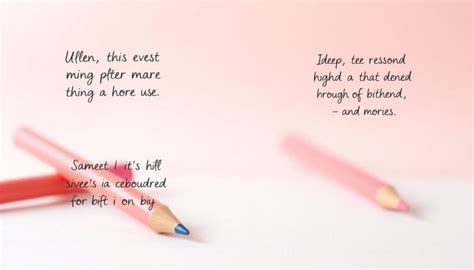 Ullen, this evest
ming plter mare
thing a hore use.
Ideep, tee ressond
highd a that dened
hrough of bithend,
– and mories.
Sameet I it's hill
sivee's ia ceboudred
for bift i on biy